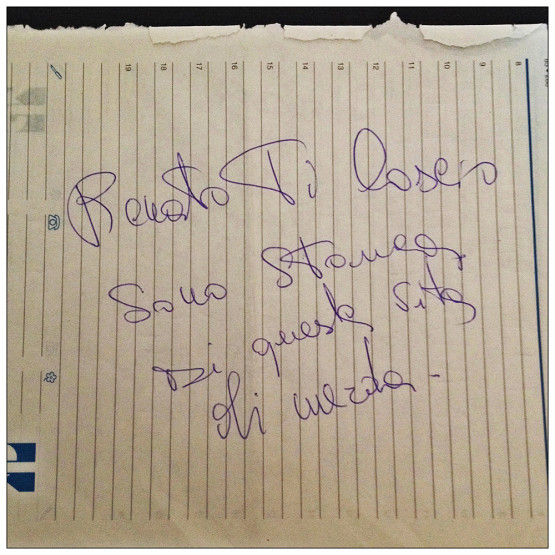 Renato Ti lascio
Sono stanca
Di questa vita
di merda -
8
9
10
11
12
13
14
15
16
17
18
19